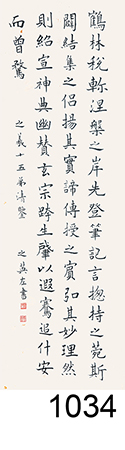 鶴林税軫涅槃之岸先登筆記言揔持之菀斯
闢結集之侶揚其實諦傳授之賓弘其妙理然
則紹宣神典幽賛玄宗跨生肇以遐騖追什安
而曾騖
之義十五弟清鑒
之英左書
1034